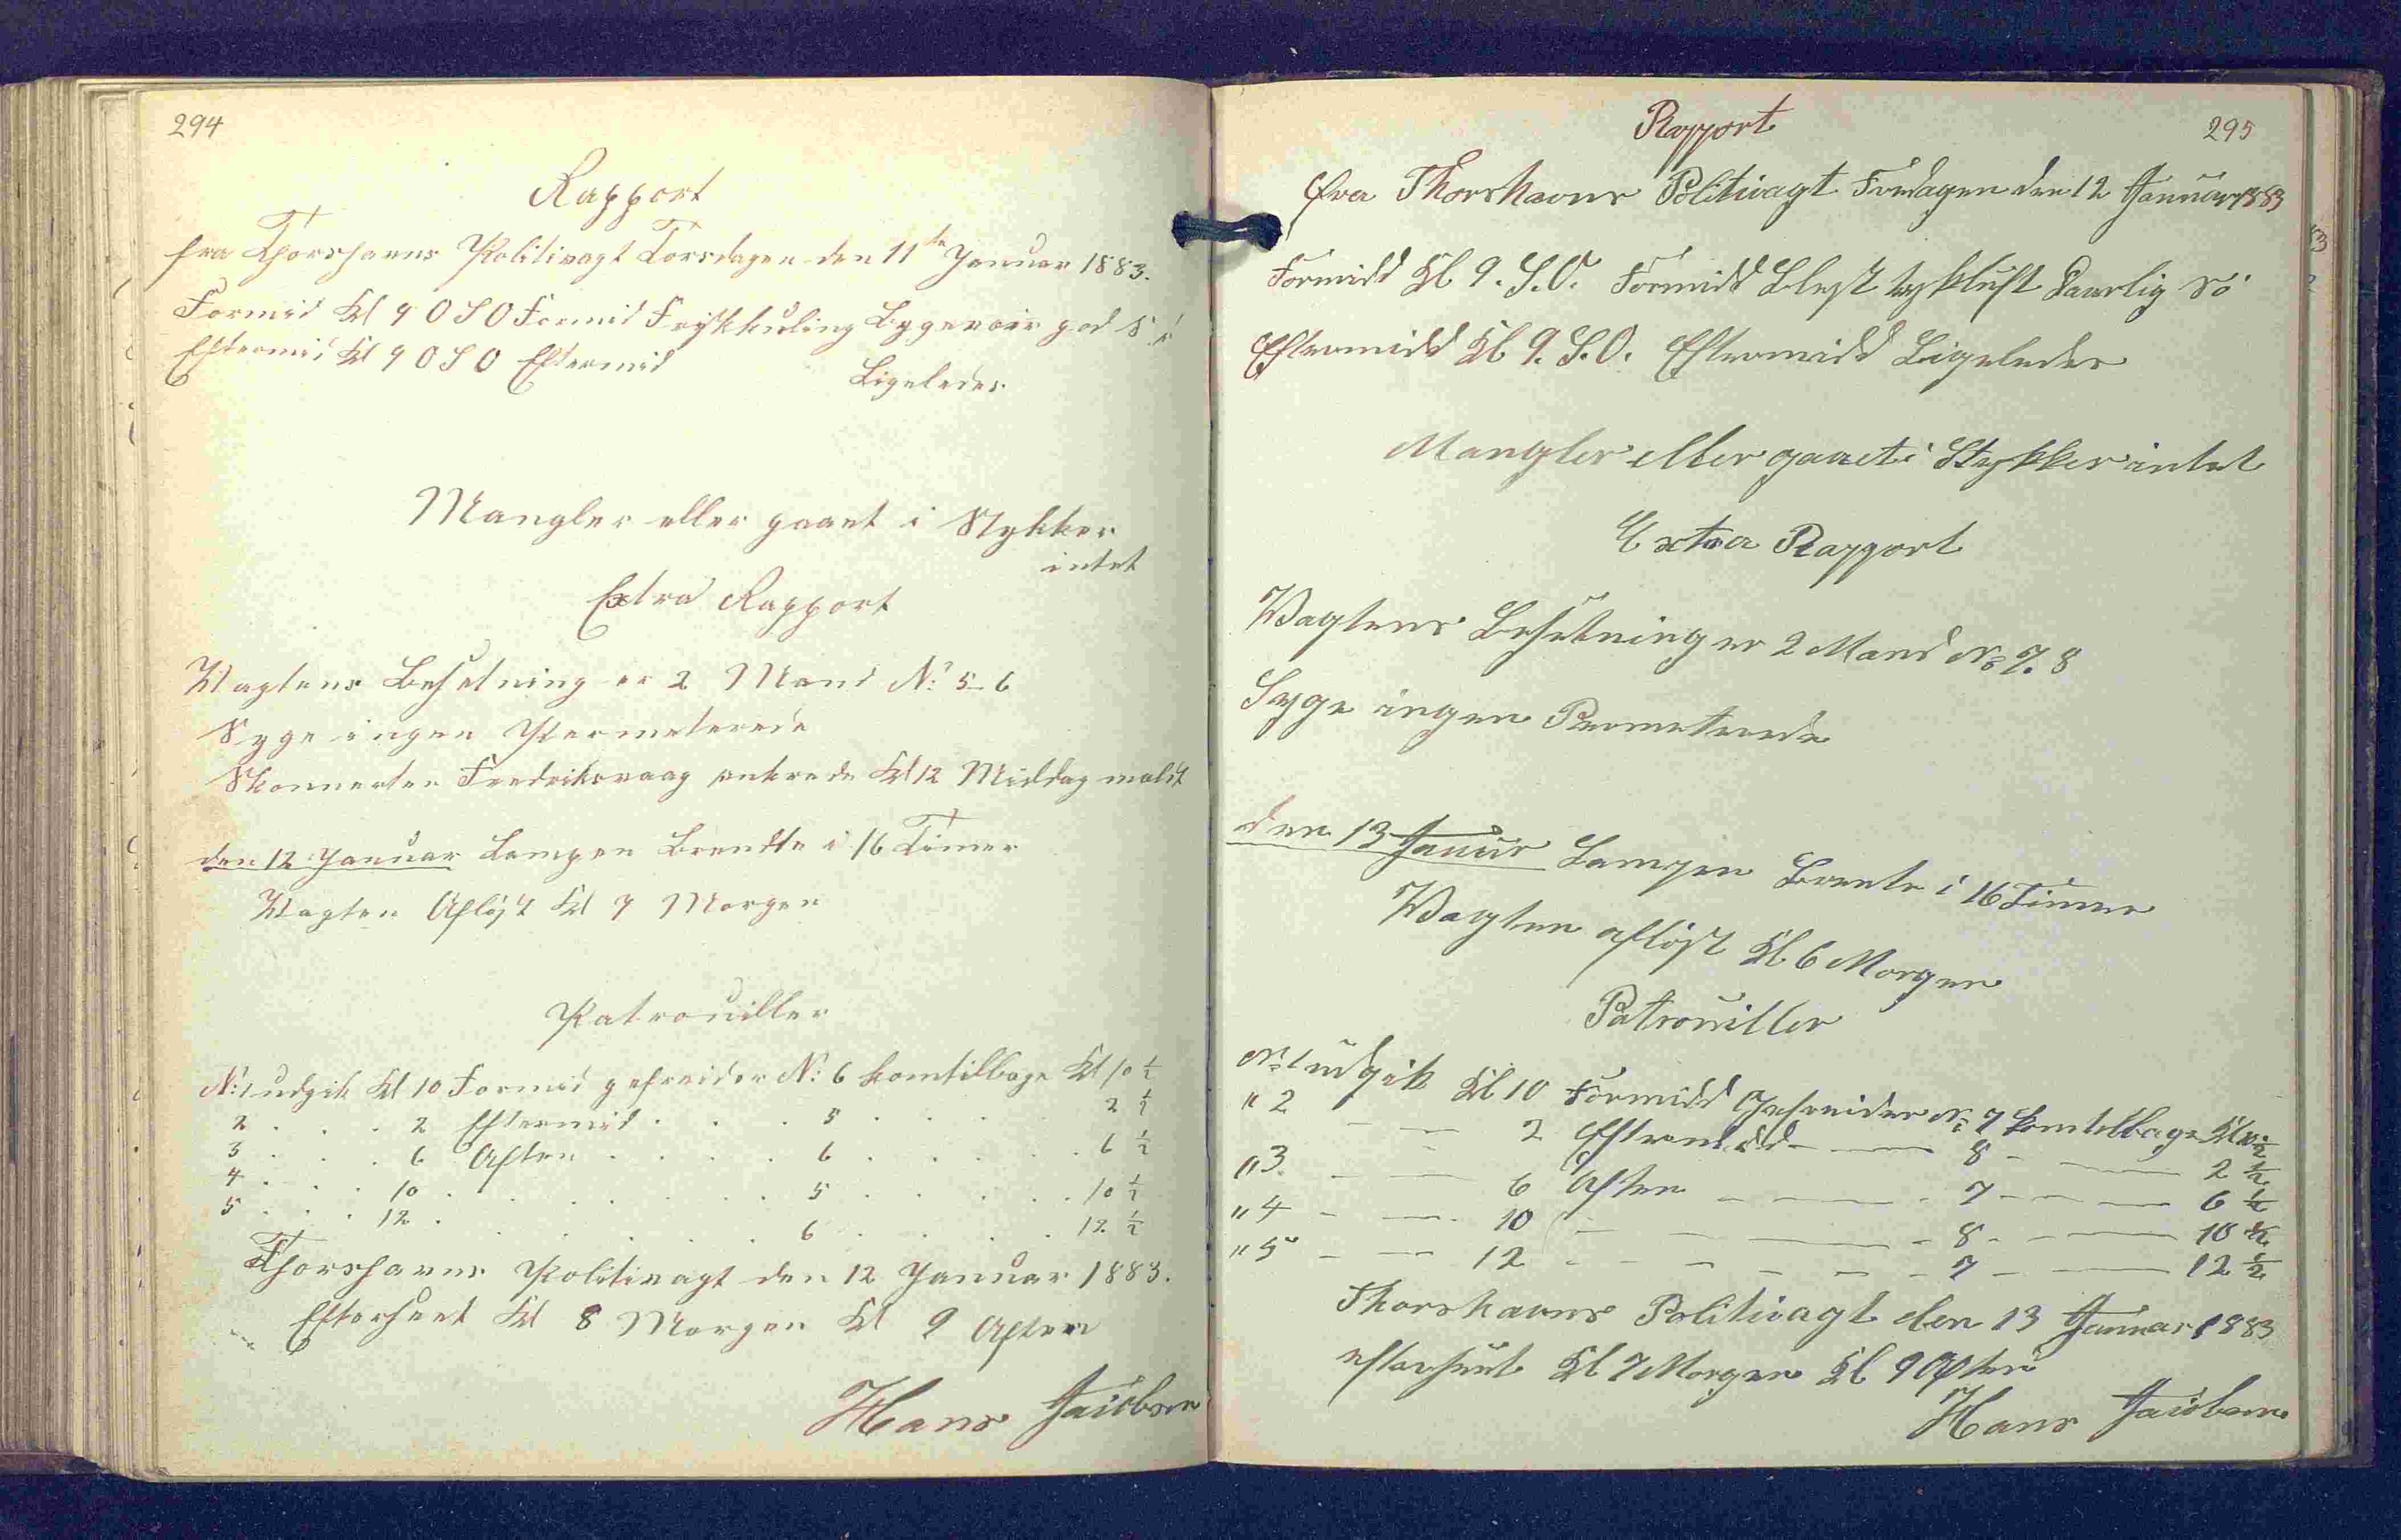 294
Rapport
fra Thorshavns Politivagt Torsdagen den 11te Januar 1883.
Formid Kl 9 O S O Formid Friskkuling Bygeveir god Sigt
Eftermid Kl 9 O S O Eftermid Ligeledes
Mangler eller gaaet i Stykker
intet
Extra Rapport
Vagtens Besetning er 2 Mand No 5-6
Syge ingen Permeterede
Skonnerten Fredriksvaag ankrede Kl 12 Middag meldt
den 12 Januar Lampen Brendte i 16 Timer
Vagten Afløst Kl 7 Morgen
Patrouiller
No 1 udgik Kl 10 Formid gefreider No 6 komtilbage Kl 10 1/2
2 . . . 2 Eftermid . . . 5 . . . . 2 1/2
3 . . . 6 Aften . . . . 6 . . . . 6 1/2
4 . . . 10 . . . . . . 5 . . . . 10 1/2
5 . . . 12 . . . . . . 6 . . . . 12 1/2
Thorshavns Politivagt den 12 Januar 1883.
Efterseet Kl 8 Morgen Kl 9 Aften
Hans Jacobsen
Rapport
295
fra Thorshavns Politivagt Fredagen den 12 Januar 1883
Formidd Kl 9. S.O. Formidd Blest tykluft Daarlig Sö
Eftermidd Kl 9. S.O. Eftermidd Ligeledes
Mangler eller gaaet i Stykker intet
Extra Rapport
Vagtens Besetning er 2 Mand No 7. 8
Syge ingen Permeterede
den 13 Januar Lampen Brente i 16 Timer
Vagten afløst Kl 6 Morgen
Patrouiller
No 1 udgik Kl 10 Formidd Gefreider No 7 komtilbage Kl 10 1/2
" 2 — — 2 Eftermidd — — 8 — — 2 1/2
" 3 — — 6 Aften — — 7 — — 6 1/2
" 4 — — 10 — — — 8 — — 10 1/2
" 5 — — 12 — — — 7 — — 12 1/2
Thorshavns Politivagt den 13 Januar 1883
efterseet Kl 7 Morgen Kl 9 Aften
Hans Jacobsen